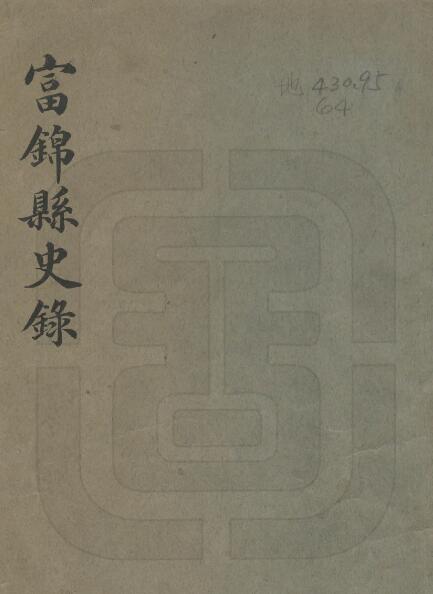 富錦縣史錄
地 430.95
64